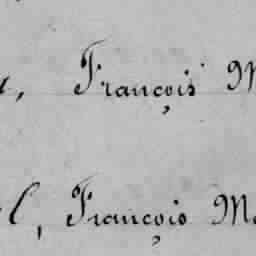 , François M
l, François Ma